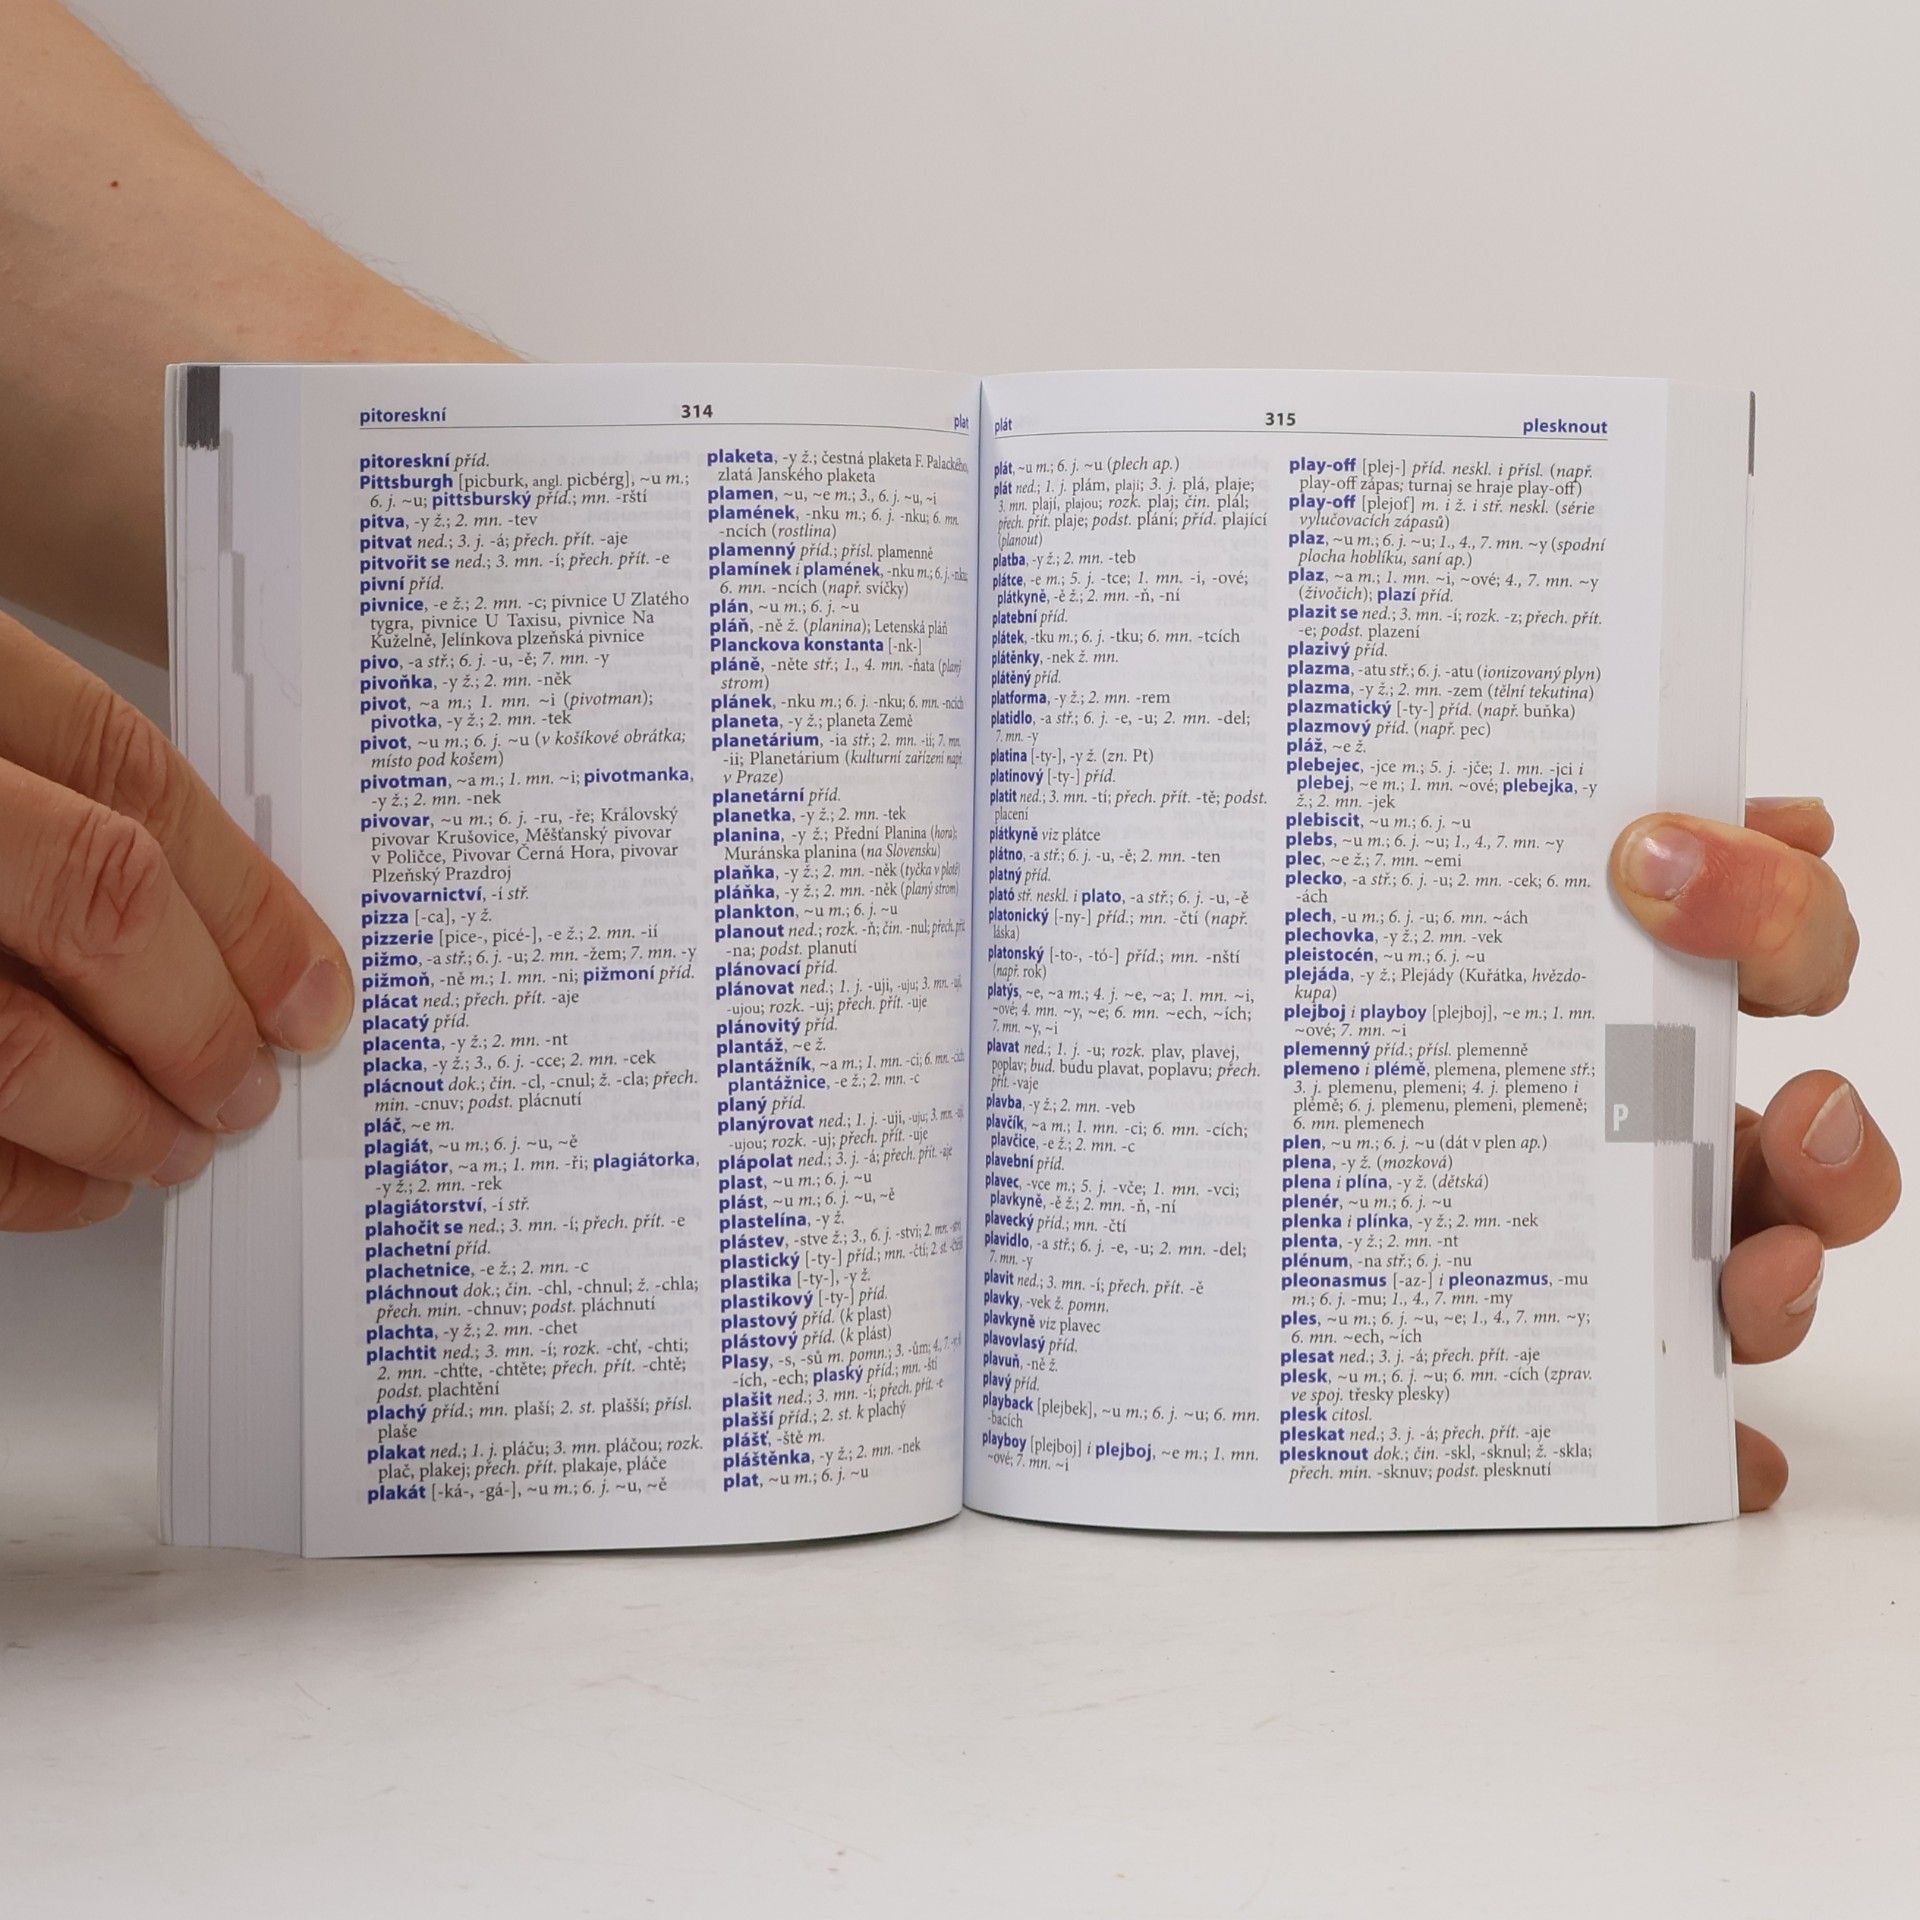 pitoreskní
314
plat
pitoreskní příd.
Pittsburgh [picburk, angl. picbérg], ~u m.;
6. j. ~u; pittsburský příd.; mn. -rští
pitva, -y ž.; 2. mn. -tev
pitvat ned.; 3. j. -á; přech. přít. -aje
pitvořit se ned.; 3. mn. -í; přech. přít. -e
pivní příd.
pivnice, -e ž.; 2. mn. -c; pivnice U Zlatého
tygra, pivnice U Taxisu, pivnice Na
Kuželně, Jelínkova plzeňská pivnice
pivo, -a stř.; 6. j. -u, -ě; 7. mn. -y
pivoňka, -y ž.; 2. mn. -něk
pivot, ~a m.; 1. mn. ~i (pivotman);
pivotka, -y ž.; 2. mn. -tek
pivot, ~u m.; 6. j. ~u (v košíkové obrátka;
místo pod košem)
pivotman, ~a m.; 1. mn. ~i; pivotmanka,
-y ž.; 2. mn. -nek
pivovar, ~u m.; 6. j. -ru, -ře; Královský
pivovar Krušovice, Měšťanský pivovar
v Poličce, Pivovar Černá Hora, pivovar
Plzeňský Prazdroj
pivovarnictví, -í stř.
pizza [-ca], -y ž.
pizzerie [pice-, picé-], -e ž.; 2. mn. -ií
pižmo, -a stř.; 6. j. -u; 2. mn. -žem; 7. mn. -y
pižmoň, -ně m.; 1. mn. -ni; pižmoní příd.
plácat ned.; přech. přít. -aje
placatý příd.
placenta, -y ž.; 2. mn. -nt
placka, -y ž.; 3., 6. j. -cce; 2. mn. -cek
plácnout dok.; čin. -cl, -cnul; ž. -cla; přech.
min. -cnuv; podst. plácnutí
pláč, ~e m.
plagiát, ~u m.; 6. j. ~u, ~ě
plagiátor, ~a m.; 1. mn. -ři; plagiátorka,
-y ž.; 2. mn. -rek
plagiátorství, -í stř.
plahočit se ned.; 3. mn. -í; přech. přít. -e
plachetní příd.
plachetnice, -e ž.; 2. mn. -c
pláchnout dok.; čin. -chl, -chnul; ž. -chla;
přech. min. -chnuv; podst. pláchnutí
plachta, -y ž.; 2. mn. -chet
plachtit ned.; 3. mn. -í; rozk. -chť, -chti;
2. mn. -chťte, -chtěte; přech. přít. -chtě;
podst. plachtění
plachý příd.; mn. plaší; 2. st. plašší; přísl.
plaše
plakat ned.; 1. j. pláču; 3. mn. pláčou; rozk.
plač, plakej; přech. přít. plakaje, pláče
plakát [-ká-, -gá-], ~u m.; 6. j. ~u, ~ě
plaketa, -y ž.; čestná plaketa F. Palackého,
zlatá Janského plaketa
plamen, ~u, ~e m.; 3., 6. j. ~u, ~i
plamének, -nku m.; 6. j. -nku; 6. mn.
-ncích (rostlina)
plamenný příd.; přísl. plamenně
plamínek i plamének, -nku m.; 6. j. -nku;
6. mn. -ncích (např. svíčky)
plán, ~u m.; 6. j. ~u
pláň, -ně ž. (planina); Letenská pláň
Planckova konstanta [-nk-]
pláně, -něte stř.; 1., 4. mn. -ňata (planý
strom)
plánek, -nku m.; 6. j. -nku; 6. mn. -ncích
planeta, -y ž.; planeta Země
planetárium, -ia stř.; 2. mn. -ií; 7. mn.
-ii; Planetárium (kulturní zařízení např.
v Praze)
planetární příd.
planetka, -y ž.; 2. mn. -tek
planina, -y ž.; Přední Planina (hora);
Muránska planina (na Slovensku)
plaňka, -y ž.; 2. mn. -něk (tyčka v plotě)
pláňka, -y ž.; 2. mn. -něk (planý strom)
plankton, ~u m.; 6. j. ~u
planout ned.; rozk. -ň; čin. -nul; přech. přít.
-na; podst. planutí
plánovací příd.
plánovat ned.; 1. j. -uji, -uju; 3. mn. -ují,
-ujou; rozk. -uj; přech. přít. -uje
plánovitý příd.
plantáž, ~e ž.
plantážník, ~a m.; 1. mn. -ci; 6. mn. -cích
plantážnice, -e ž.; 2. mn. -c
planý příd.
planýrovat ned.; 1. j. -uji, -uju; 3. mn. -ují,
-ujou; rozk. -uj; přech. přít. -uje
plápolat ned.; 3. j. -á; přech. přít. -aje
plast, ~u m.; 6. j. ~u
plást, ~u m.; 6. j. ~u, ~ě
plastelína, -y ž.
plástev, -stve ž.; 3., 6. j. -stvi; 2. mn. -tví
plastický [-ty-] příd.; mn. -čtí; 2. st. -čtější
plastika [-ty-], -y ž.
plastikový [-ty-] příd.
plastový příd. (k plast)
plástový příd. (k plást)
Plasy, -s, -sů m. pomn.; 3. -ům; 4., 7. -sy; 6.
-ích, -ech; plaský příd.; mn. -ští
plašit ned.; 3. mn. -í; přech. přít. -e
plašší příd.; 2. st. k plachý
plášť, -ště m.
pláštěnka, -y ž.; 2. mn. -nek
plat, ~u m.; 6. j. ~u
plát
315
plesknout
plát, ~u m.; 6. j. ~u (plech ap.)
plát ned.; 1. j. plám, plaji; 3. j. plá, plaje;
3. mn. plají, plajou; rozk. plaj; čin. plál;
přech. přít. plaje; podst. plání; příd. plající
(planout)
platba, -y ž.; 2. mn. -teb
plátce, -e m.; 5. j. -tce; 1. mn. -i, -ové;
plátkyně, -ě ž.; 2. mn. -ň, -ní
platební příd.
plátek, -tku m.; 6. j. -tku; 6. mn. -tcích
plátěnky, -nek ž. mn.
plátěný příd.
platforma, -y ž.; 2. mn. -rem
platidlo, -a stř.; 6. j. -e, -u; 2. mn. -del;
7. mn. -y
platina [-ty-], -y ž. (zn. Pt)
platinový [-ty-] příd.
platit ned.; 3. mn. -tí; přech. přít. -tě; podst.
placení
plátkyně viz plátce
plátno, -a stř.; 6. j. -u, -ě; 2. mn. -ten
platný příd.
plató stř. neskl. i plato, -a stř.; 6. j. -u, -ě
platonický [-ny-] příd.; mn. -čtí (např.
láska)
platonský [-to-, -tó-] příd.; mn. -nští
(např. rok)
platýs, ~e, ~a m.; 4. j. ~e, ~a; 1. mn. ~i,
~ové; 4. mn. ~y, ~e; 6. mn. ~ech, ~ích;
7. mn. ~y, ~i
plavat ned.; 1. j. -u; rozk. plav, plavej,
poplav; bud. budu plavat, poplavu; přech.
přít. -vaje
plavba, -y ž.; 2. mn. -veb
plavčík, ~a m.; 1. mn. -ci; 6. mn. -cích;
plavčice, -e ž.; 2. mn. -c
plavební příd.
plavec, -vce m.; 5. j. -vče; 1. mn. -vci;
plavkyně, -ě ž.; 2. mn. -ň, -ní
plavecký příd.; mn. -čtí
plavidlo, -a stř.; 6. j. -e, -u; 2. mn. -del;
7. mn. -y
plavit ned.; 3. mn. -í; přech. přít. -ě
plavky, -vek ž. pomn.
plavkyně viz plavec
plavovlasý příd.
plavuň, -ně ž.
plavý příd.
playback [plejbek], ~u m.; 6. j. ~u; 6. mn.
-bacích
playboy [plejboj] i plejboj, ~e m.; 1. mn.
~ové; 7. mn. ~i
play-off [plej-] příd. neskl. i přísl. (např.
play-off zápas; turnaj se hraje play-off)
play-off [plejof] m. i ž. i stř. neskl. (série
vylučovacích zápasů)
plaz, ~u m.; 6. j. ~u; 1., 4., 7. mn. ~y (spodní
plocha hoblíku, saní ap.)
plaz, ~a m.; 1. mn. ~i, ~ové; 4., 7. mn. ~y
(živočich); plazí příd.
plazit se ned.; 3. mn. -í; rozk. -z; přech. přít.
-e; podst. plazení
plazivý příd.
plazma, -atu stř.; 6. j. -atu (ionizovaný plyn)
plazma, -y ž.; 2. mn. -zem (tělní tekutina)
plazmatický [-ty-] příd. (např. buňka)
plazmový příd. (např. pec)
pláž, ~e ž.
plebejec, -jce m.; 5. j. -jče; 1. mn. -jci i
plebej, ~e m.; 1. mn. ~ové; plebejka, -y
ž.; 2. mn. -jek
plebiscit, ~u m.; 6. j. ~u
plebs, ~u m.; 6. j. ~u; 1., 4., 7. mn. ~y
plec, ~e ž.; 7. mn. ~emi
plecko, -a stř.; 6. j. -u; 2. mn. -cek; 6. mn.
-ách
plech, -u m.; 6. j. -u; 6. mn. ~ách
plechovka, -y ž.; 2. mn. -vek
pleistocén, ~u m.; 6. j. ~u
plejáda, -y ž.; Plejády (Kuřátka, hvězdo-
kupa)
plejboj i playboy [plejboj], ~e m.; 1. mn.
~ové; 7. mn. ~i
plemenný příd.; přísl. plemenně
plemeno i plémě, plemena, plemene stř.;
3. j. plemenu, plemeni; 4. j. plemeno i
plémě; 6. j. plemenu, plemeni, plemeně;
6. mn. plemenech
plen, ~u m.; 6. j. ~u (dát v plen ap.)
plena, -y ž. (mozková)
plena i plína, -y ž. (dětská)
plenér, ~u m.; 6. j. ~u
plenka i plínka, -y ž.; 2. mn. -nek
plenta, -y ž.; 2. mn. -nt
plénum, -na stř.; 6. j. -nu
pleonasmus [-az-] i pleonazmus, -mu
m.; 6. j. -mu; 1., 4., 7. mn. -my
ples, ~u m.; 6. j. ~u, ~e; 1., 4., 7. mn. ~y;
6. mn. ~ech, ~ích
plesat ned.; 3. j. -á; přech. přít. -aje
plesk, ~u m.; 6. j. ~u; 6. mn. -cích (zprav.
ve spoj. třesky plesky)
plesk citosl.
pleskat ned.; 3. j. -á; přech. přít. -aje
plesknout dok.; čin. -skl, -sknul; ž. -skla;
přech. min. -sknuv; podst. plesknutí
P